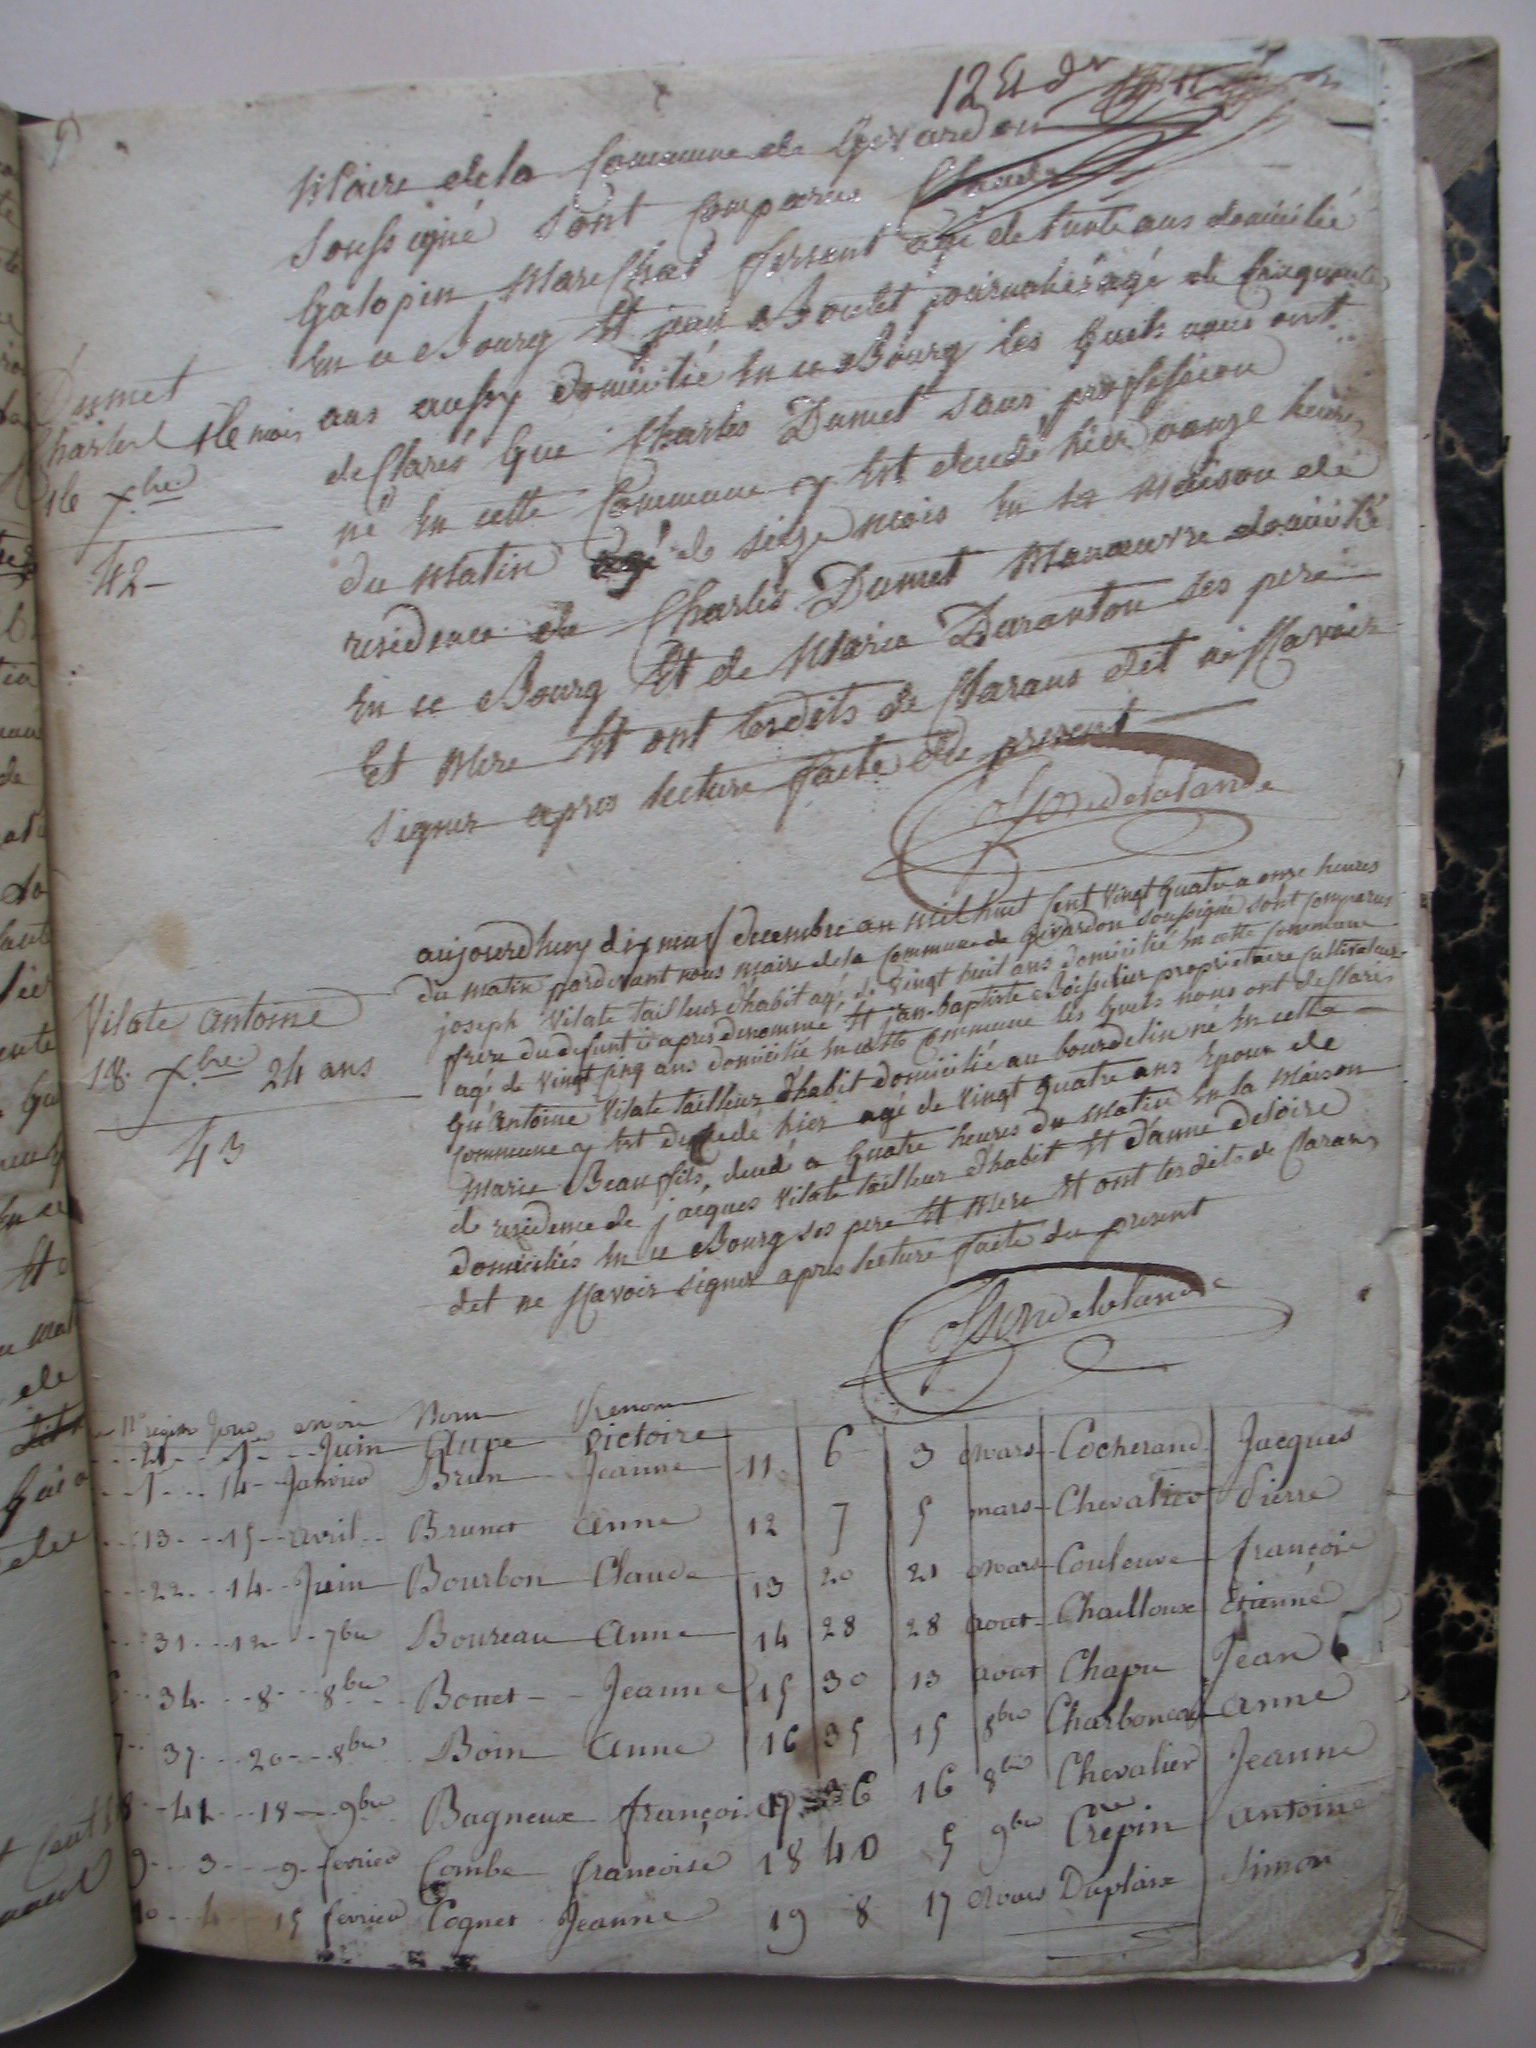 12 Et dr
Maire de la Commune de Givardon
Soussigné Sont Comparus Claude
Galopin Marechal ferrant agé de trente ans domicilié
En ce Bourg Et jean Boutet journalier agé de Cinquante
ans aussy domicilié En ce Bourg les quels nous ont
declaré que Charles Dumet Sans profession
né En cette Commune y Est decedé hier a onze heures
du matin agé de seize mois En la Maison de
residence de Charles Dumet Manoeuvre domicilié
En ce Bourg Et de Marie Daranton ses pere
Et Mere Et ont lesdits de Clarans dit ne Scavoir
signer apres lecture faite du present
Dumet
Charles 16 mois
16 xbre
42
aujourdhuy dix neuf decembre an mil huit Cent vingt quatre a onze heures
du matin pardevant nous maire de la Commune de Givardon soussigné sont comparus
joseph Vilate tailleur d'habit agé de vingt huit ans domicilié En cette Commune
frere du defunt ci apres denommé Et jan-baptiste Boissivier proprietaire Cultivateur
agé de vingt cinq ans domicilié En cette Commune les quels nous ont declarés
qu'antoine Vilate tailleur d'habit domicilié au bourdelin né En cette
Commune y Est decedé hier agé de vingt quatre ans Epoux de
Marie Beaufils, decedé a quatre heures du matin En la Maison
de residence de jacques Vilate tailleur d'habit Et d'anne Deloire
domiciliés En ce Bourg ses pere Et Mere Et ont lesdits de Clarans
dit ne Scavoir signer apres lecture faite du present
Vilate antoine
18 xbre 24 ans
43
No regist Jour mois Nom Prenom
21 1er Juin Aupe Victoire 11 6 3 Mars Cocherand Jacques
1 14 Janvier Brun Jeanne
13 15 avril Brunet Anne 12 7 5 mars Chevalier Pierre
22 14 Juin Bourbon Claude 13 20 21 Mars Couleuvre françoise
31 12 7bre Boureau Anne 14 28 28 aout Chailloux Etienne
34 8 8bre Bonnet Jeanne 15 30 13 aout Chapu Jean
7 37 20 8bre Boin Anne 16 35 15 8bre Charboneau Anne
8 41 18 9bre Bagneux françoise 17 36 16 8bre Chevalier Jeanne
9 3 9 fevrier Combe françoise 18 40 5 9bre Crepin Antoine
10 4 15 fevrier Coquet Jeanne 19 8 17 Mars Duplaix Simon